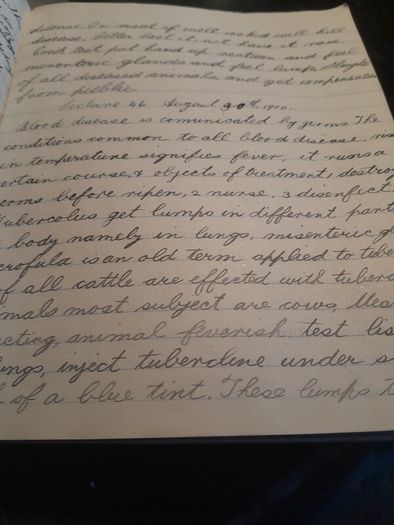 disease. In meat if well cooked will kill
disease, better beef it not have it rare.
test put hand up rectum and feel
mesenteric glands and feel lumps.
of all diseased animals and get compensation
from public.
Lecture 46. August 30th, 1900.
Blood disease is comunicated by germs. The
conditions common to all blood disease, ris
in temperature signifies fever, it runs a
ertain course, 3 objects of treatment, 1 destroy
erms before ripen, 2 nurse. 3 disenfect
Tubercolus get lumps in different part
body namely in lungs, misenteric gl
crofula is an old term applied to tube
f all cattle are effected with tuberc
mals most subject are cows,
ecting, animal feverish. test lis
ungs, inject tubercline under s
of a blue tint. These lumps t